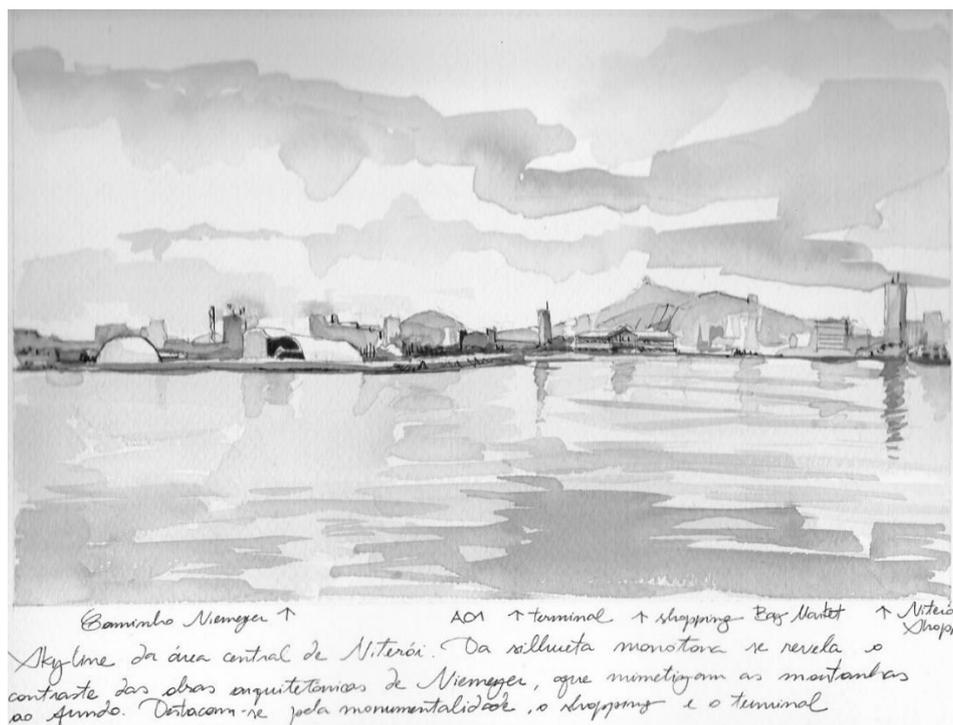 Caminho Niemeyer ↑ AO1 ↑ terminal ↑ shopping Bay Market ↑ Niterói
Shopp
Skyline da área central de Niterói. Da silhueta monotona se revela o
contraste das obras arquitetônicas de Niemeyer, que mimetizam as montanhas
ao fundo. Destacam-se pela monumentalidade, o shopping e o terminal